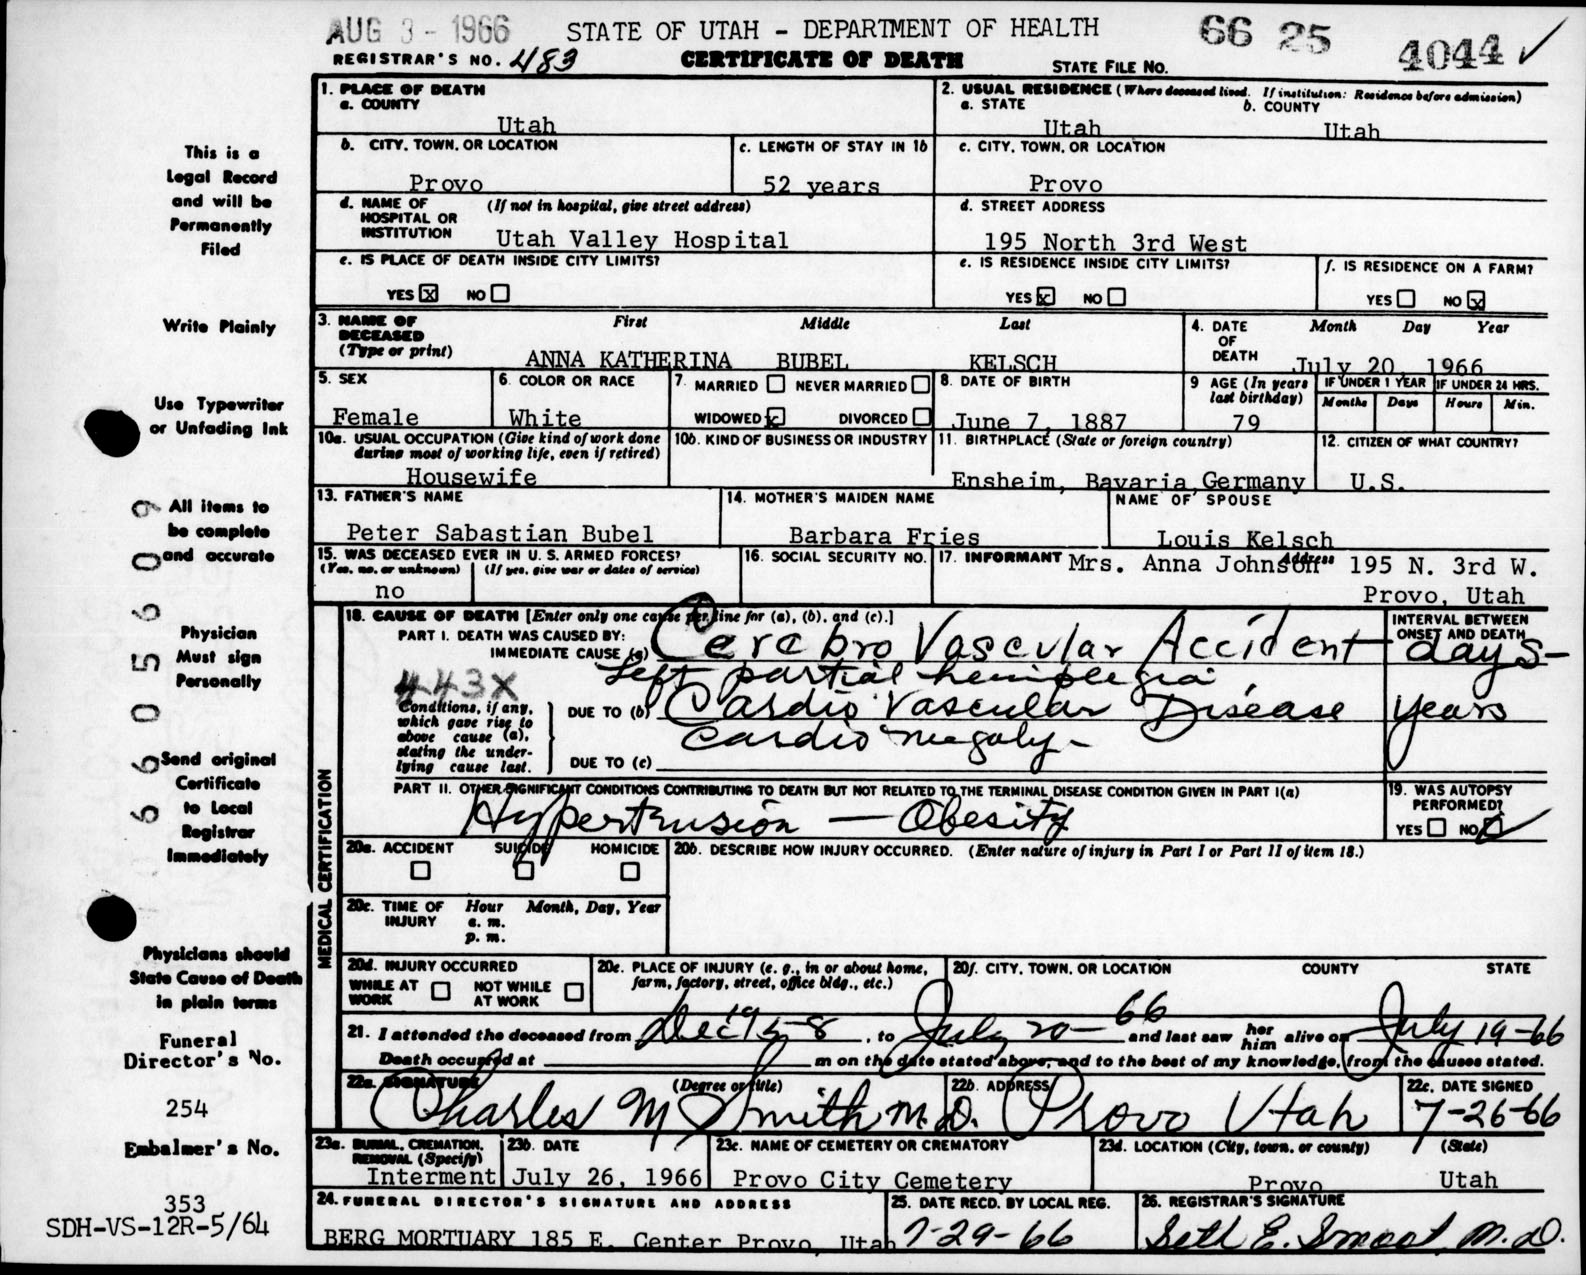 AUG 3 - 1966 STATE OF UTAH - DEPARTMENT OF HEALTH 66 25 4044 ✓
REGISTRAR'S NO. 483 CERTIFICATE OF DEATH STATE FILE NO.
1. PLACE OF DEATH
a. COUNTY
Utah
2. USUAL RESIDENCE (Where deceased lived. If institution: Residence before admission)
a. STATE b. COUNTY
Utah Utah
b. CITY, TOWN, OR LOCATION
Provo
c. LENGTH OF STAY IN 1b
52 years
c. CITY, TOWN, OR LOCATION
Provo
d. NAME OF HOSPITAL OR INSTITUTION (If not in hospital, give street address)
Utah Valley Hospital
d. STREET ADDRESS
195 North 3rd West
e. IS PLACE OF DEATH INSIDE CITY LIMITS?
YES [x] NO [ ]
e. IS RESIDENCE INSIDE CITY LIMITS?
YES [x] NO [ ]
f. IS RESIDENCE ON A FARM?
YES [ ] NO [x]
3. NAME OF DECEASED (Type or print) First Middle Last
ANNA KATHERINA BUBEL KELSCH
4. DATE OF DEATH Month Day Year
July 20, 1966
5. SEX
Female
6. COLOR OR RACE
White
7. MARRIED [ ] NEVER MARRIED [ ]
WIDOWED [x] DIVORCED [ ]
8. DATE OF BIRTH
June 7, 1887
9 AGE (In years last birthday)
79
IF UNDER 1 YEAR IF UNDER 24 HRS.
Months Days Hours Min.
10a. USUAL OCCUPATION (Give kind of work done during most of working life, even if retired)
Housewife
10b. KIND OF BUSINESS OR INDUSTRY
11. BIRTHPLACE (State or foreign country)
Ensheim, Bavaria, Germany
12. CITIZEN OF WHAT COUNTRY?
U.S.
13. FATHER'S NAME
Peter Sabastian Bubel
14. MOTHER'S MAIDEN NAME
Barbara Fries
NAME OF SPOUSE
Louis Kelsch
15. WAS DECEASED EVER IN U. S. ARMED FORCES?
(Yes, no, or unknown) (If yes, give war or dates of service)
no
16. SOCIAL SECURITY NO.
17. INFORMANT Mrs. Anna Johnson Address 195 N. 3rd W.
Provo, Utah
MEDICAL CERTIFICATION
18. CAUSE OF DEATH [Enter only one cause per line for (a), (b), and (c).]
PART I. DEATH WAS CAUSED BY:
IMMEDIATE CAUSE (a) Cerebro Vascular Accident
Left partial hemiplegia
443X
Conditions, if any, which gave rise to above cause (a), stating the underlying cause last.
DUE TO (b) Cardio Vascular Disease
Cardiomegaly-
DUE TO (c)
INTERVAL BETWEEN ONSET AND DEATH
days-
years
PART II. OTHER SIGNIFICANT CONDITIONS CONTRIBUTING TO DEATH BUT NOT RELATED TO THE TERMINAL DISEASE CONDITION GIVEN IN PART I(a)
Hypertension — Obesity
19. WAS AUTOPSY PERFORMED?
YES [ ] NO [✓]
20a. ACCIDENT SUICIDE HOMICIDE
20b. DESCRIBE HOW INJURY OCCURRED. (Enter nature of injury in Part I or Part II of item 18.)
20c. TIME OF INJURY Hour Month, Day, Year
a. m.
p. m.
20d. INJURY OCCURRED
WHILE AT WORK [ ] NOT WHILE AT WORK [ ]
20e. PLACE OF INJURY (e. g., in or about home, farm, factory, street, office bldg., etc.)
20f. CITY, TOWN, OR LOCATION COUNTY STATE
21. I attended the deceased from Dec 1958, to July 20-66 and last saw her him alive on July 19-66
Death occurred at m on the date stated above, and to the best of my knowledge, from the causes stated.
22a. SIGNATURE (Degree or title)
Charles M Smith M.D.
22b. ADDRESS
Provo Utah
22c. DATE SIGNED
7-26-66
23a. BURIAL, CREMATION, REMOVAL (Specify)
Interment
23b. DATE
July 26, 1966
23c. NAME OF CEMETERY OR CREMATORY
Provo City Cemetery
23d. LOCATION (City, town, or county) (State)
Provo Utah
24. FUNERAL DIRECTOR'S SIGNATURE AND ADDRESS
BERG MORTUARY 185 E. Center Provo, Utah
25. DATE RECD. BY LOCAL REG.
7-29-66
26. REGISTRAR'S SIGNATURE
Seth E. Smoot, M.D.
This is a
Legal Record
and will be
Permanently
Filed
Write Plainly
Use Typewriter
or Unfading Ink
All items to
be complete
and accurate
Physician
Must sign
Personally
Send original
Certificate
to Local
Registrar
Immediately
Physicians should
State Cause of Death
in plain terms
Funeral
Director's No.
254
Embalmer's No.
353
SDH-VS-12R-5/64
66050609